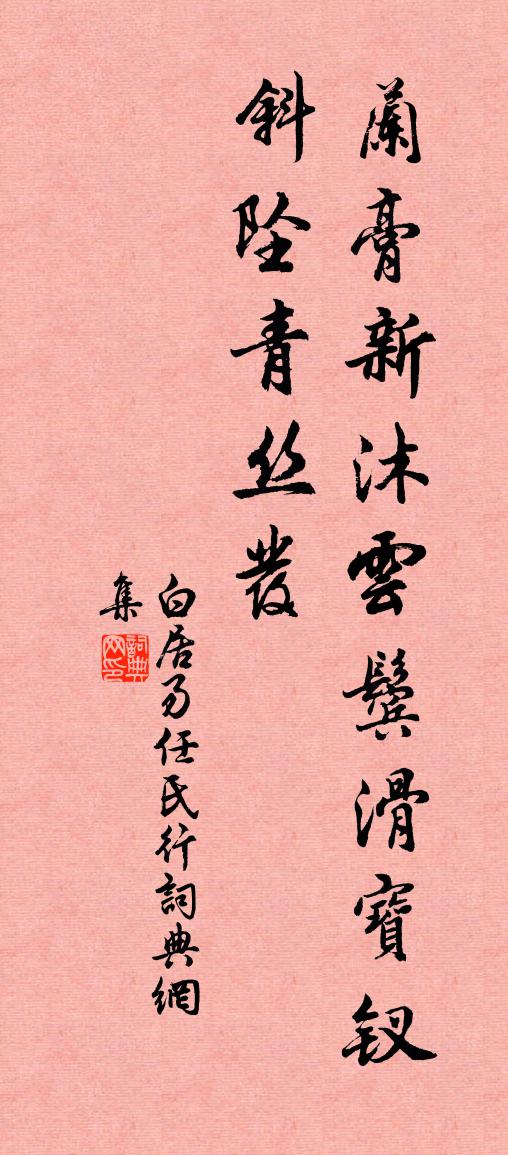 蘭膏新沐雲鬢滑寶釵
斜墜青丝發
白居易任氏行詞典網
集
詞典
网印